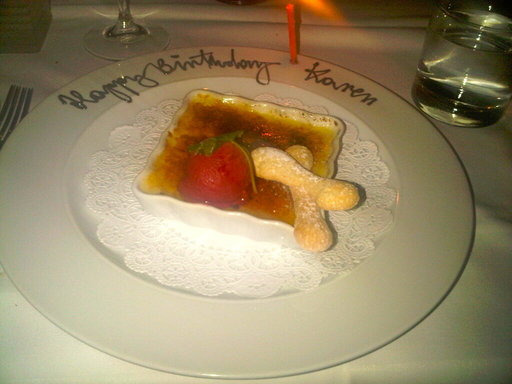 Happy Birthday Karen